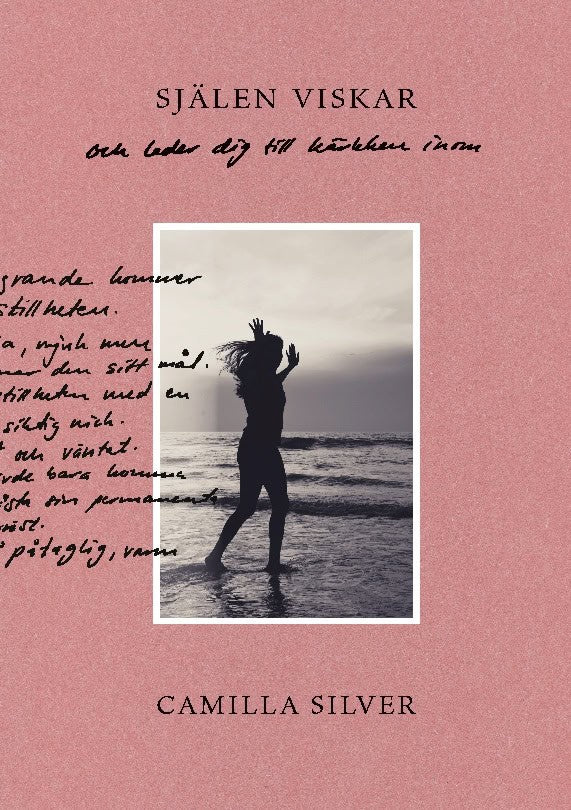 SJÄLEN VISKAR
och leder dig till kärleken inom
grande kommer
stillheten.
a, mjuk men
ner den sitt mål.
stillheten med en
siktig nick.
och väntat.
rde bara komma
sin permanenta
påtaglig, varm
CAMILLA SILVER